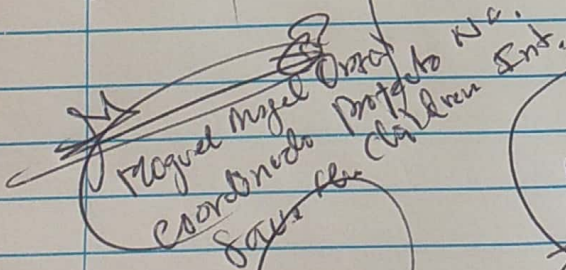 Miguel Angel
Coordinador Proyecto Na.
Save the Children Int.